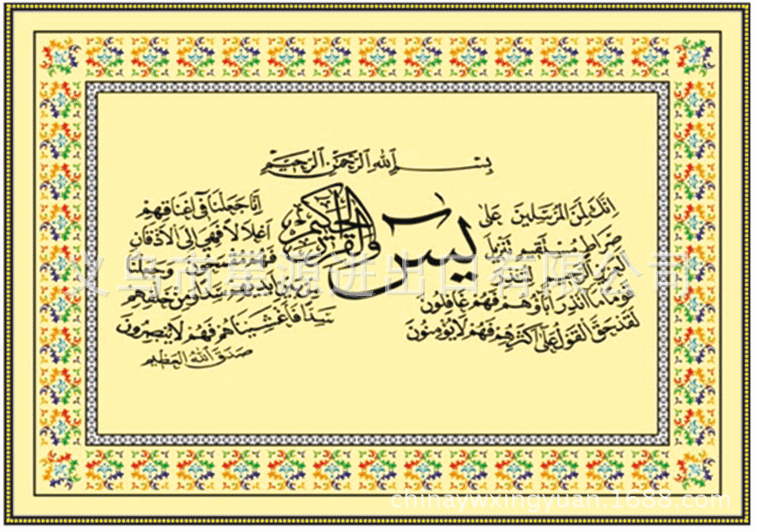 بسم الله الرحمن الرحيم
يس
والقرآن الحكيم
انك لمن المرسلين على
صراط مستقيم تنزيل
العزيز الرحيم لتنذر
قوما ما انذر آباؤهم فهم غافلون
لقد حق القول على اكثرهم فهم لا يؤمنون
انا جعلنا في اعناقهم
اغلالا فهي الى الاذقان
فهم مقمحون وجعلنا
من بين ايديهم سدا ومن خلفهم
سدا فاغشيناهم فهم لا يبصرون
صدق الله العظيم
义乌市星源进出口有限公司
chinaywxingyuan.1688.com